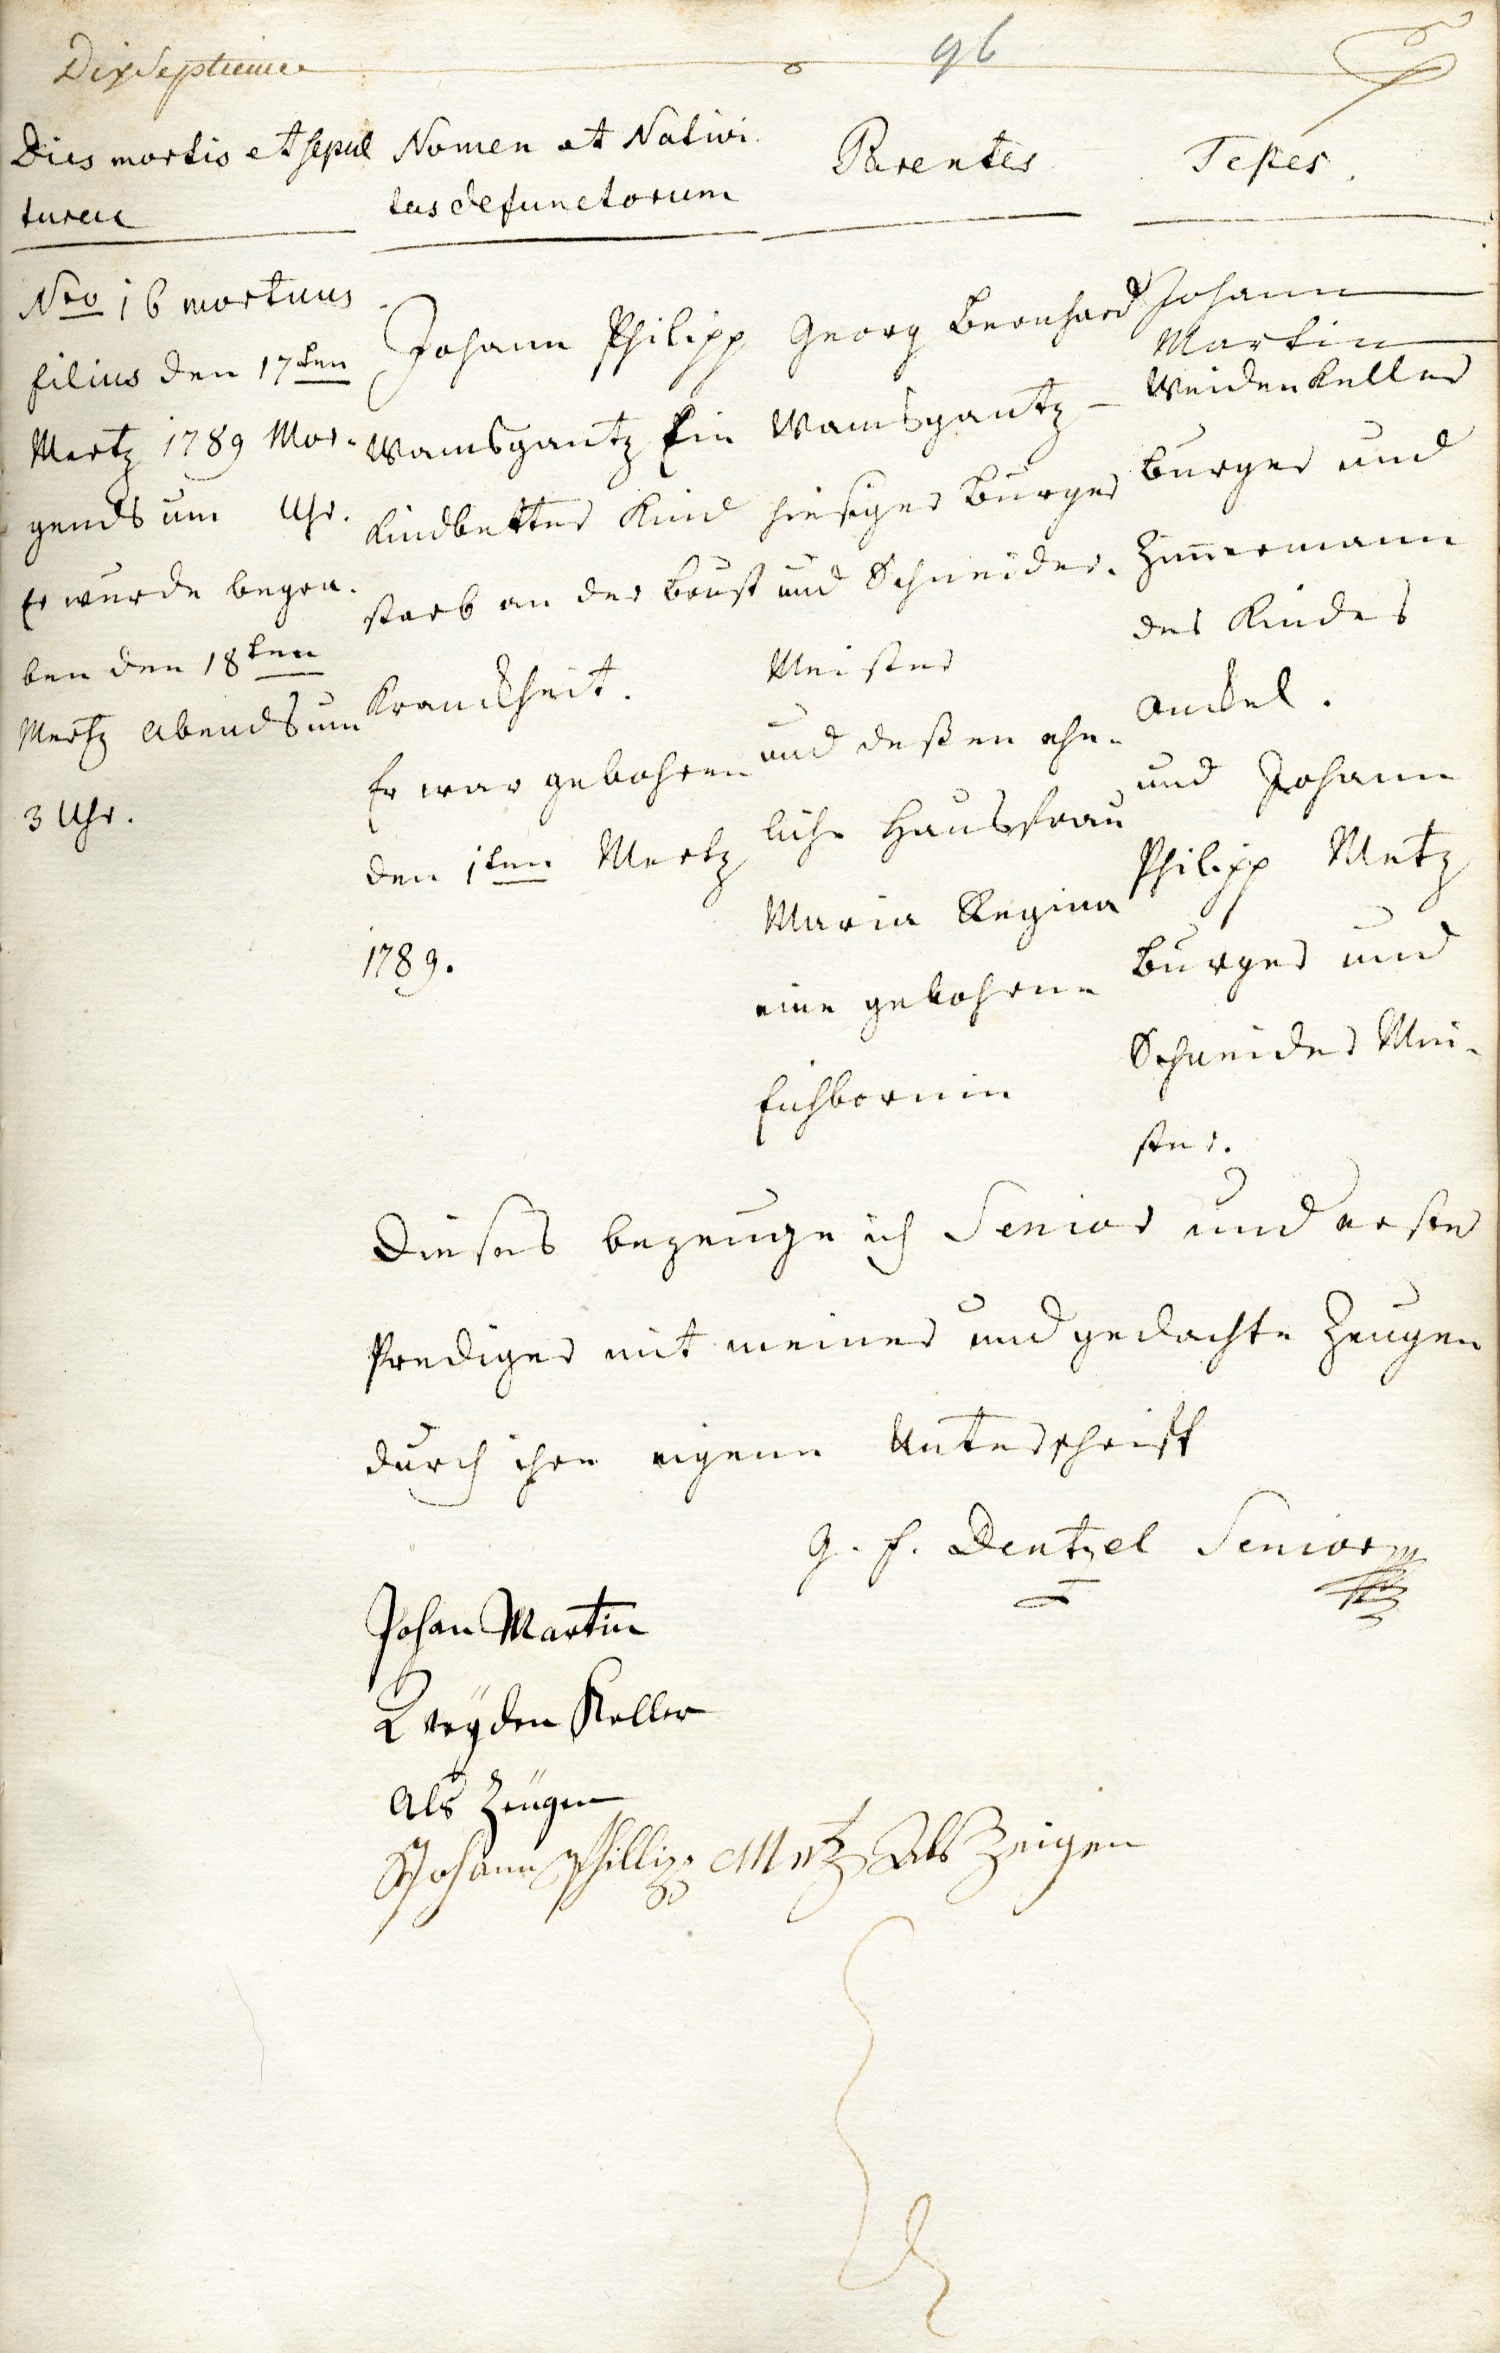 Dixseptieme
96
Dies mortis et sepul
turae
Nomen et Nativi
tas defunctorum
Parentes
Testes.
Nro 16 mortuus
filius den 17ten
Mertz 1789 Mor-
gends um Uhr.
Er wurde begra-
ben den 18ten
Mertz Abends um
3 Uhr.
Johann Philipp
Wamsgantz Ein
Kindbetter Kind
starb an der Brust
Kranckheit.
Er war gebohren
den 1ten Mertz
1789.
Georg Bernhard
Wamsgantz -
hiesiger Burger
und Schneider-
Meister
und deßen ehe-
liche Hausfrau
Maria Regina
eine gebohrne
Eichbornin
Johann
Martin
Weidenkeller
Burger und
Zimmermann
des Kindes
Onckel.
und Johann
Philipp Metz
Burger und
Schneider Mei-
ster.
Dieses bezeuge ich Senior und erster
Prediger mit meiner und gedachte Zeugen
durch ihre eigene Unterschrift
G. F. Dentzel Senior
Johan Martin
Weÿden Keller
Als Zeügen
Johann Phillip Metz Als Zeigen